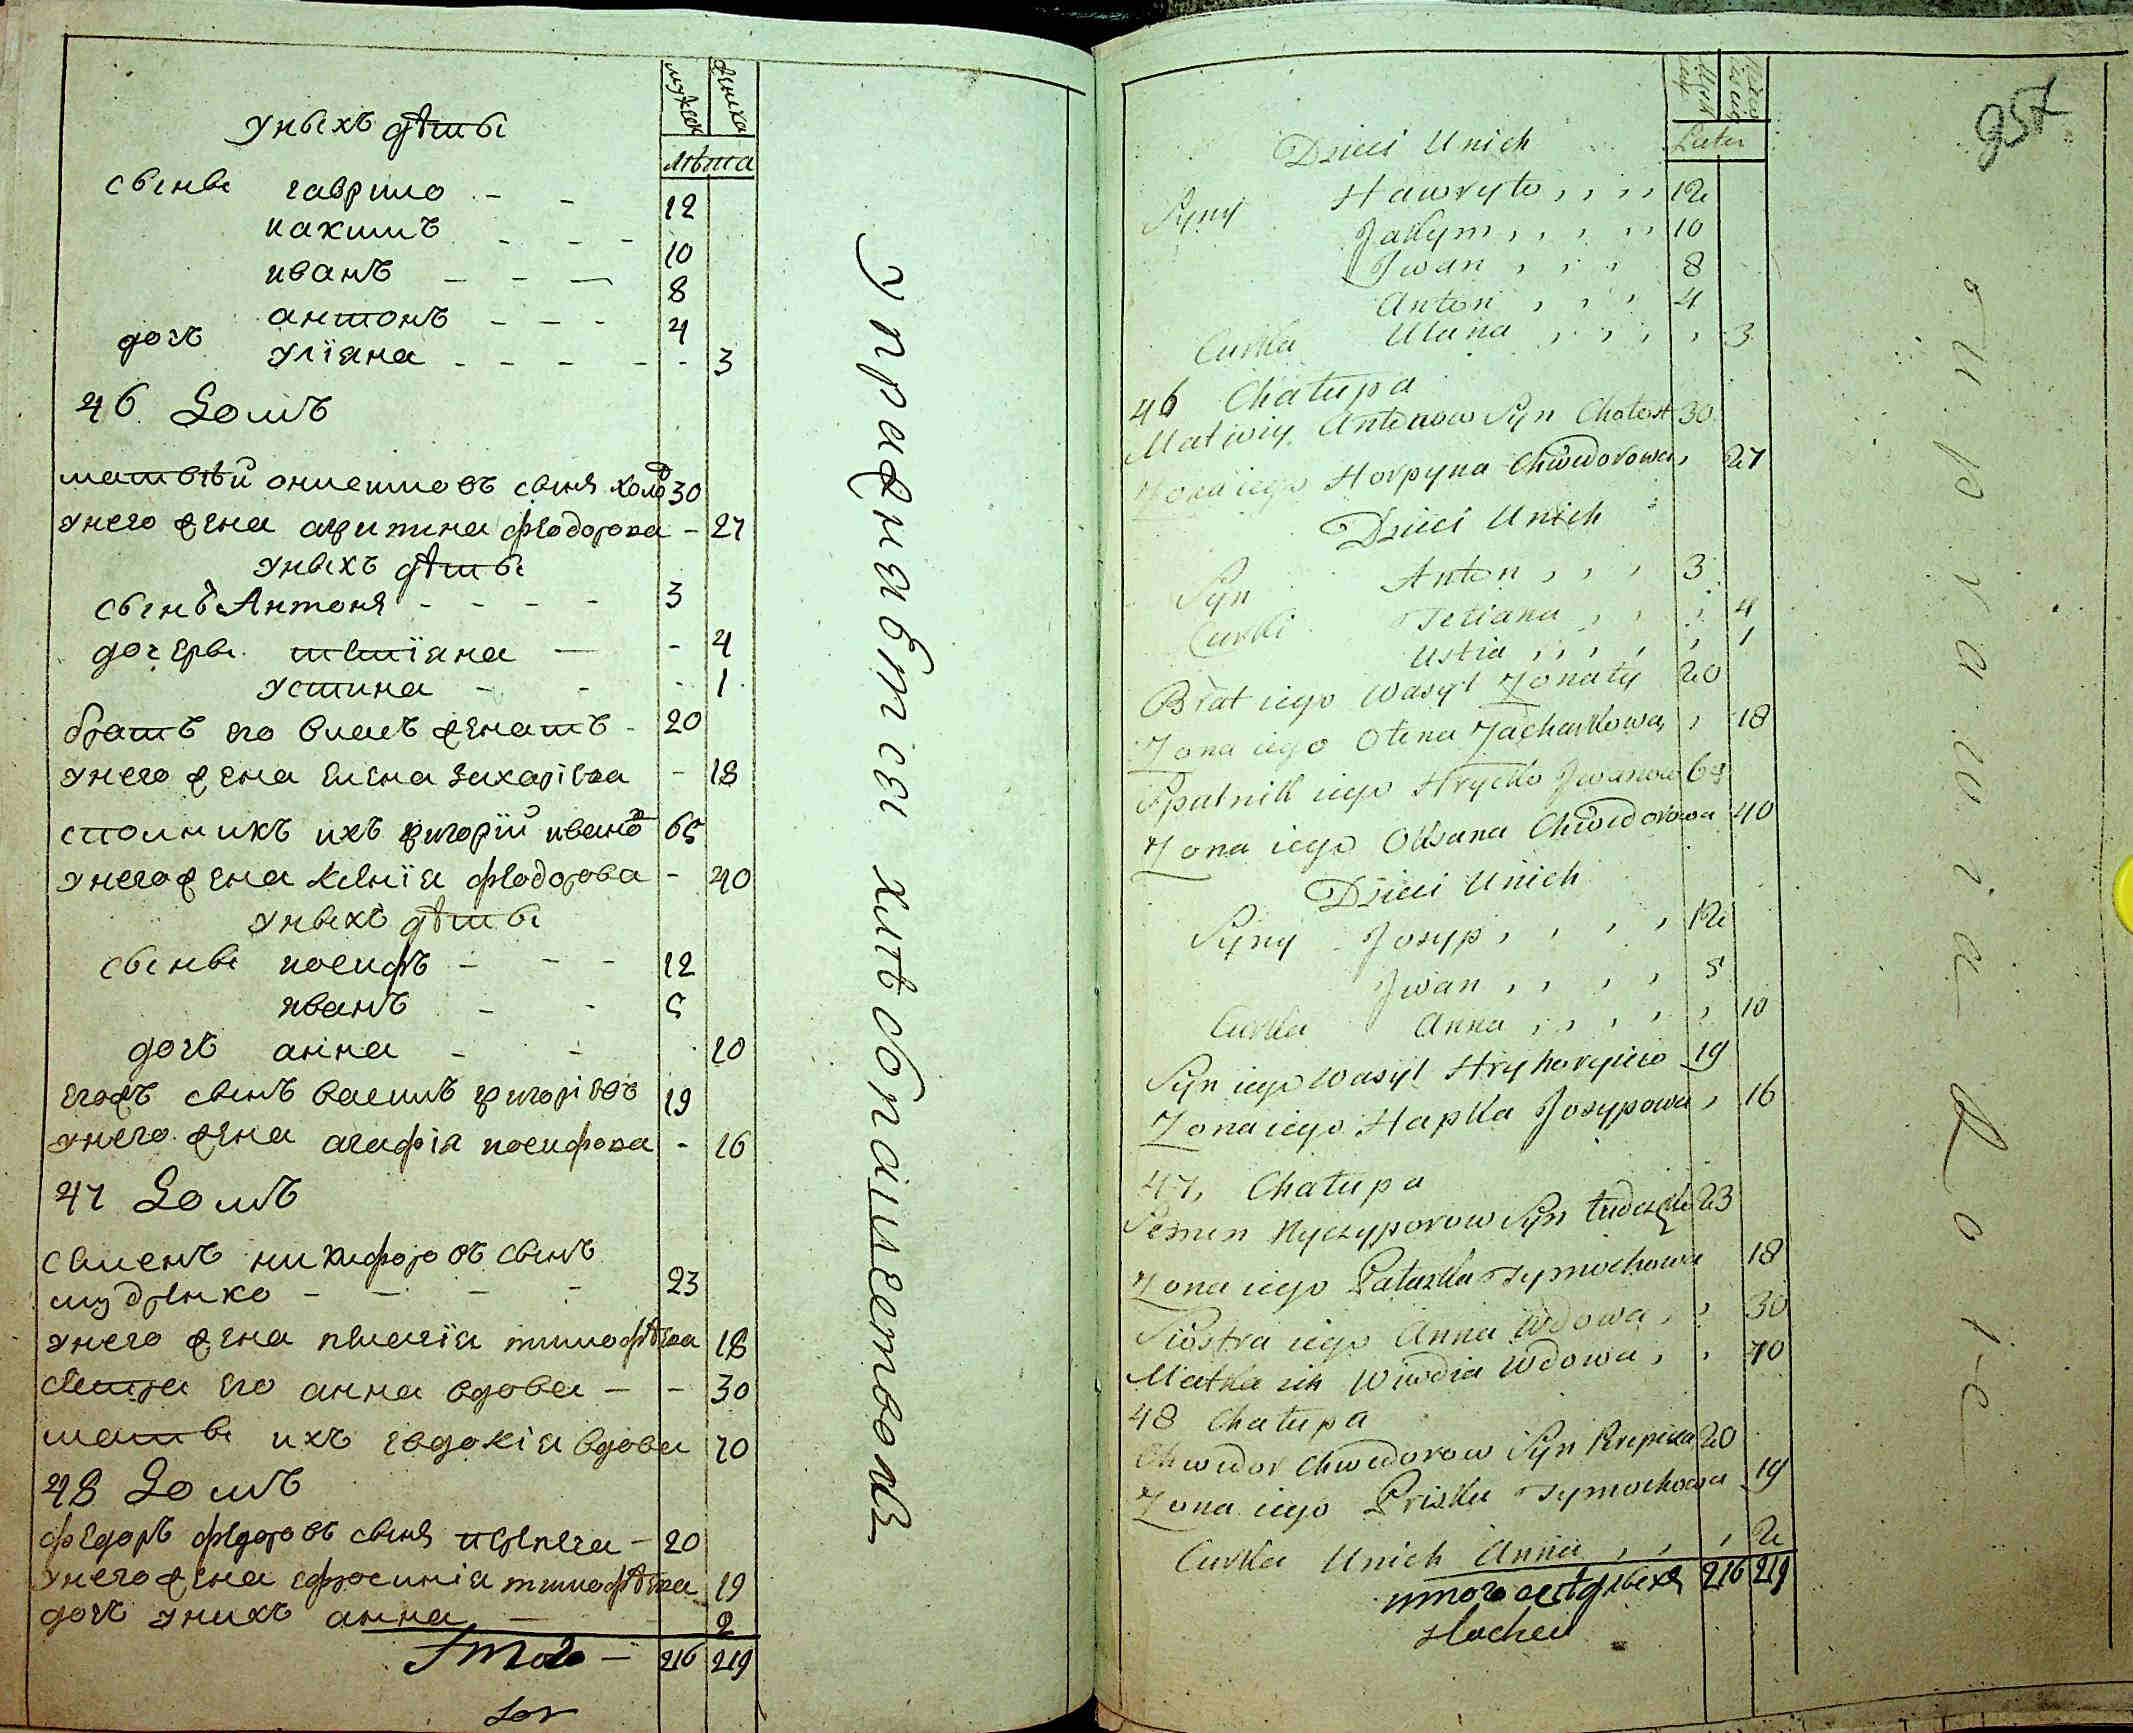 мужеск женска
унихъ дѣти
лѣта
сынвѣ гаврило - - 12
иакимъ - - - 10
иванъ - - - 8
антонъ - - - 4
дочъ улїяна - - - - - 3
46 Домъ
матвѣй сынъ холо 30
унего жена федорова - 27
унихъ дѣти
сынъ Антонъ - - - - 3
дочервѣ тетїяна - - 4
устина - - - 1
братъ его жонатъ - 20
унего жена елена захарїева - 18
ихъ григорїй иванов 65
унего жена ксенїя федорова - 40
унихъ дѣти
сынвѣ иосифъ - - - 12
иванъ - - 5
дочъ анна - - 10
егожъ сынъ василъ григорїевъ 19
унего жена агафїя иосифова - 16
47 Домъ
семенъ никифоровъ сынъ
мудренко - - - - 23
унего жена пелагїя тимофѣева 18
сестра его анна вдова - - 30
матвѣ ихъ евдокїя вдова 70
48 Домъ
федоръ федоровъ сынъ - 20
унего жена ефросинїя тимофѣева 19
дочъ унихъ анна - - 2
Итого - 216 219
упражняются хлѣбопашествомъ
957
Dzieci Unich
Lata
Syny Hawryło , , , , 12
Jakym , , , , , 10
Iwan , , , 8
Anton , , , 4
Curka Ulana , , , , , 3
46 Chałupa
Matwiy Antonow Syn Chołost 30
Żona iego Horpyna Chwedorowa , 27
Dzieci Unich
Syn Anton , , , 3
Curki Tetiana , , , 4
Ustia , , , , , 1
Brat iego Wasyl Żonaty 20
Żona iego Ołena Zacharkowa , 18
Spulnik iego Hrycko Iwanow 65
Żona iego Oksana Chwedorowa 40
Dzieci Unich
Syny Josyp , , , , 12
Iwan , , , , 5
Curka Anna , , , , , 10
Syn iego Wasyl Hryhoryiew 19
Żona iego Hapka Josypowa , 16
47, Chałupa
Semen Nyczyporow Syn 23
Żona iego Pałaszka Tymochowa 18
Siostra iego Anna Wdowa , , 30
Matka ich Wiwdia Wdowa , , 70
48 Chałupa
Chwedor Chwedorow Syn 20
Żona iego Priska Tymochowa 19
Curka Unich Anna , , , 2
итого 216 219